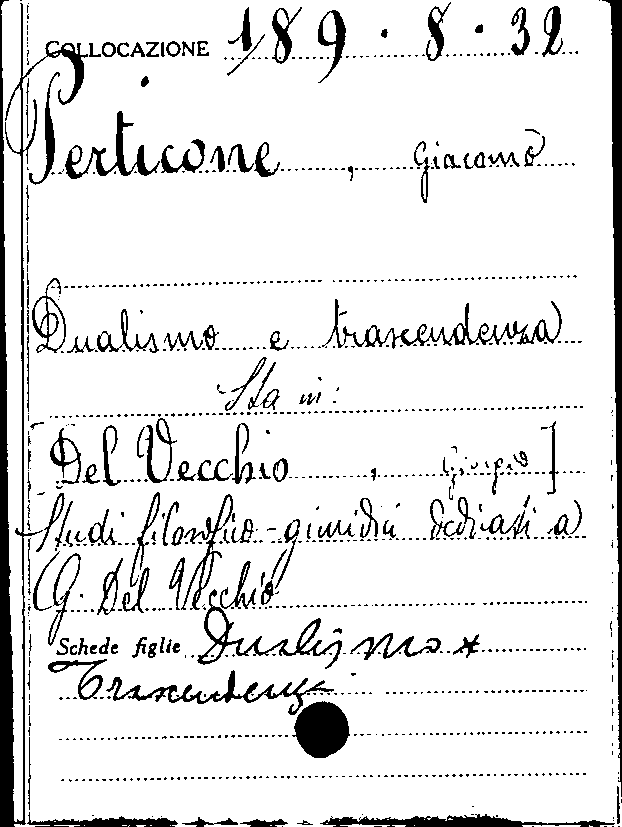 COLLOCAZIONE 189 · 8 · 32
Perticone , Giacomo
Dualismo e trascendenza
Sta in:
[Del Vecchio , Giorgio]
Studi filosofico-giuridici dedicati a
G. Del Vecchio
Schede figlie Dualismo *
Trascendenza